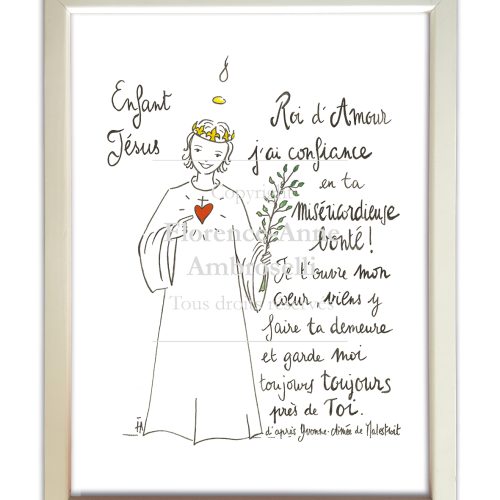 Enfant
Jésus
Roi d'Amour
j'ai confiance
en ta
miséricordieuse
bonté!
Je t'ouvre mon
coeur, viens y
faire ta demeure
et garde moi
toujours toujours
près de Toi.
d'après Yvonne-Aimée de Malestroit
Copyright
Florence-Anne
Ambroselli
Tous droits réservés